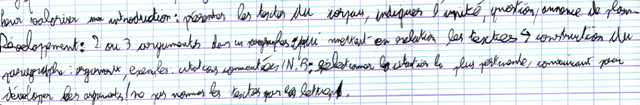 Pour valoriser une introduction : présenter les textes du corpus, indiquer l'unité, question, annonce de plan
Développement : 2 ou 3 arguments dans un paragraphe mettant en relation les textes → construction du
paragraphe : arguments, exemples. citations commentées / N.B : sélectionner la citation la plus pertinente, convaincant pour
développer les arguments / ne pas nommer les textes par les lettres.